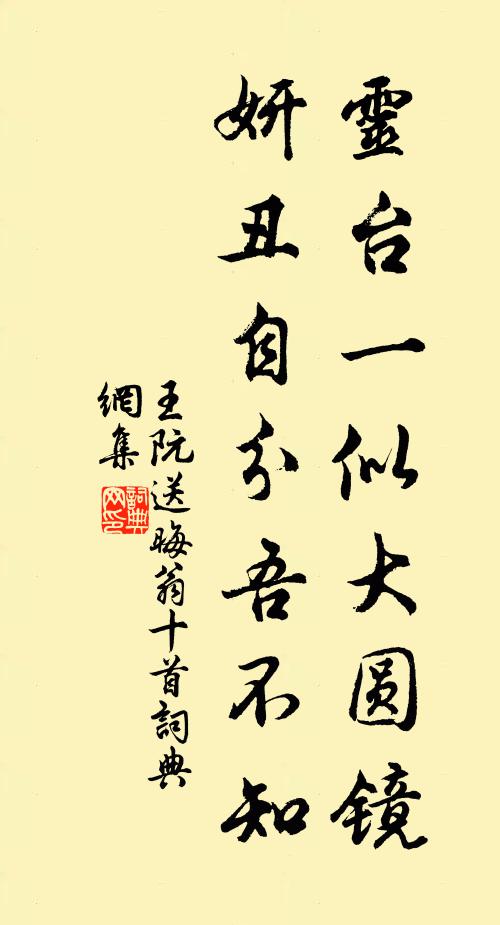 靈台一似大圆镜
妍丑自分吾不知
王阮送晦翁十首詞典
網集
詞典
网印